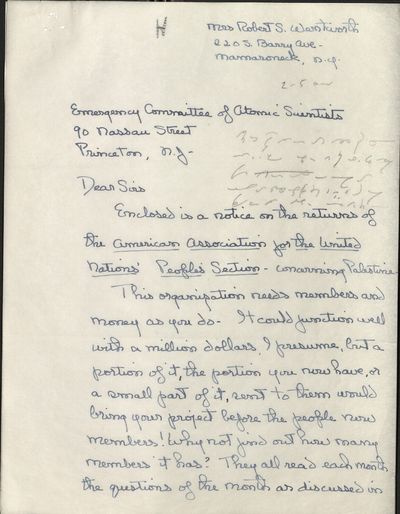 Mrs Robert S. Wentworth
220 S. Barry Ave.
Mamaroneck, N.Y.
Emergency Committee of Atomic Scientists
90 Nassau Street
Princeton, N.J-
Dear Sirs
Enclosed is a notice on the returns of
the American Association for the United
Nations' People's Section - concerning Palestine.
This organization needs members and
money as you do- It could function well
with a million dollars, I presume, but a
portion of it, the portion you now have, or
a small part of it, sent to them would
bring your project before the people now
members! Why not find out how many
members it has? They all read each month
the questions of the month as discussed in